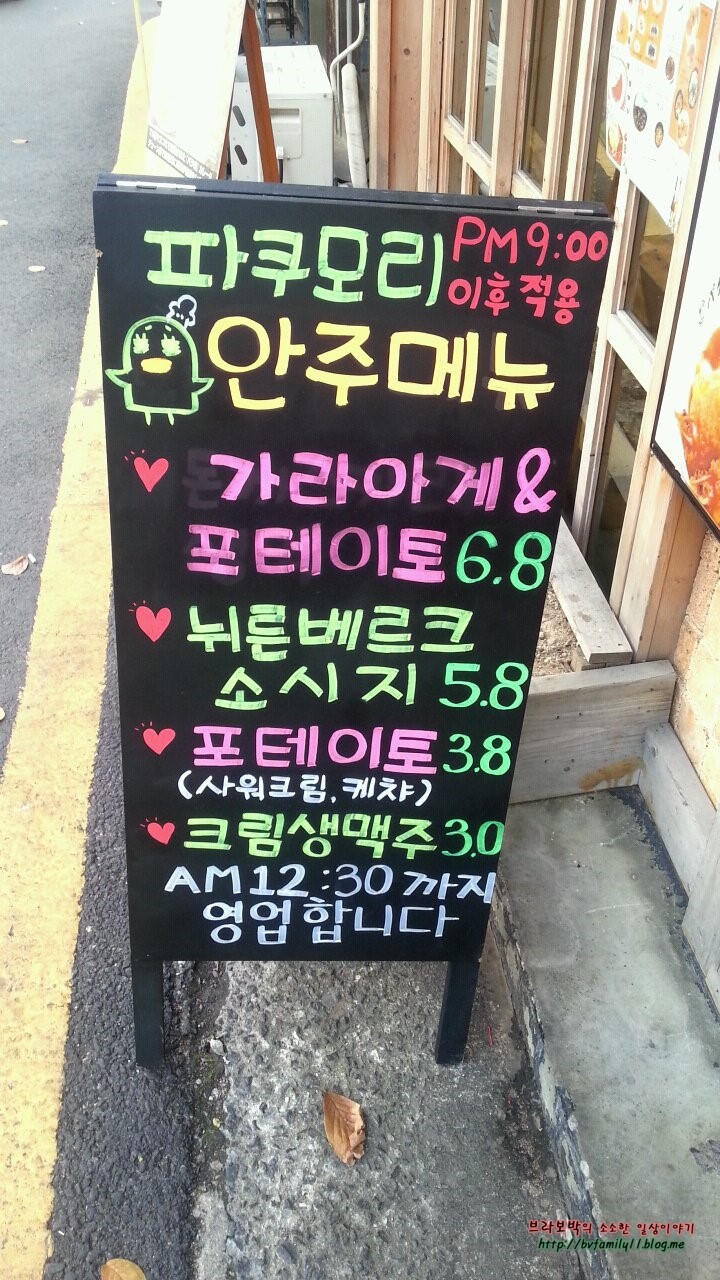 파쿠모리 PM 9:00
이후 적용
안주메뉴
가라아게 &
포테이토 6.8
뉘른베르크
소시지 5.8
포테이토 3.8
(사워크림, 케챱)
크림생맥주 3.0
AM 12:30 까지
영업합니다
브라보박의 소소한 일상이야기
http://bvfamily11.blog.me